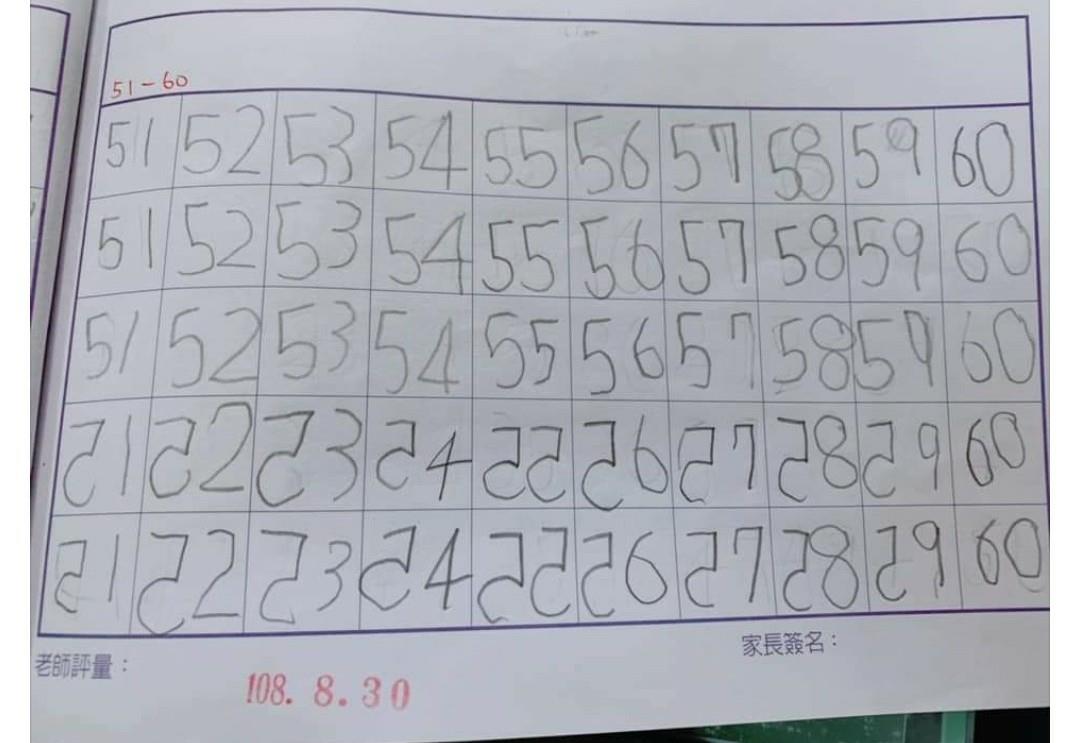 51-60
51 52 53 54 55 56 57 58 59 60
51 52 53 54 55 56 57 58 59 60
51 52 53 54 55 56 57 58 59 60
51 52 53 54 55 56 57 58 59 60
51 52 53 54 55 56 57 58 59 60
老師評量：
家長簽名：
108. 8.30